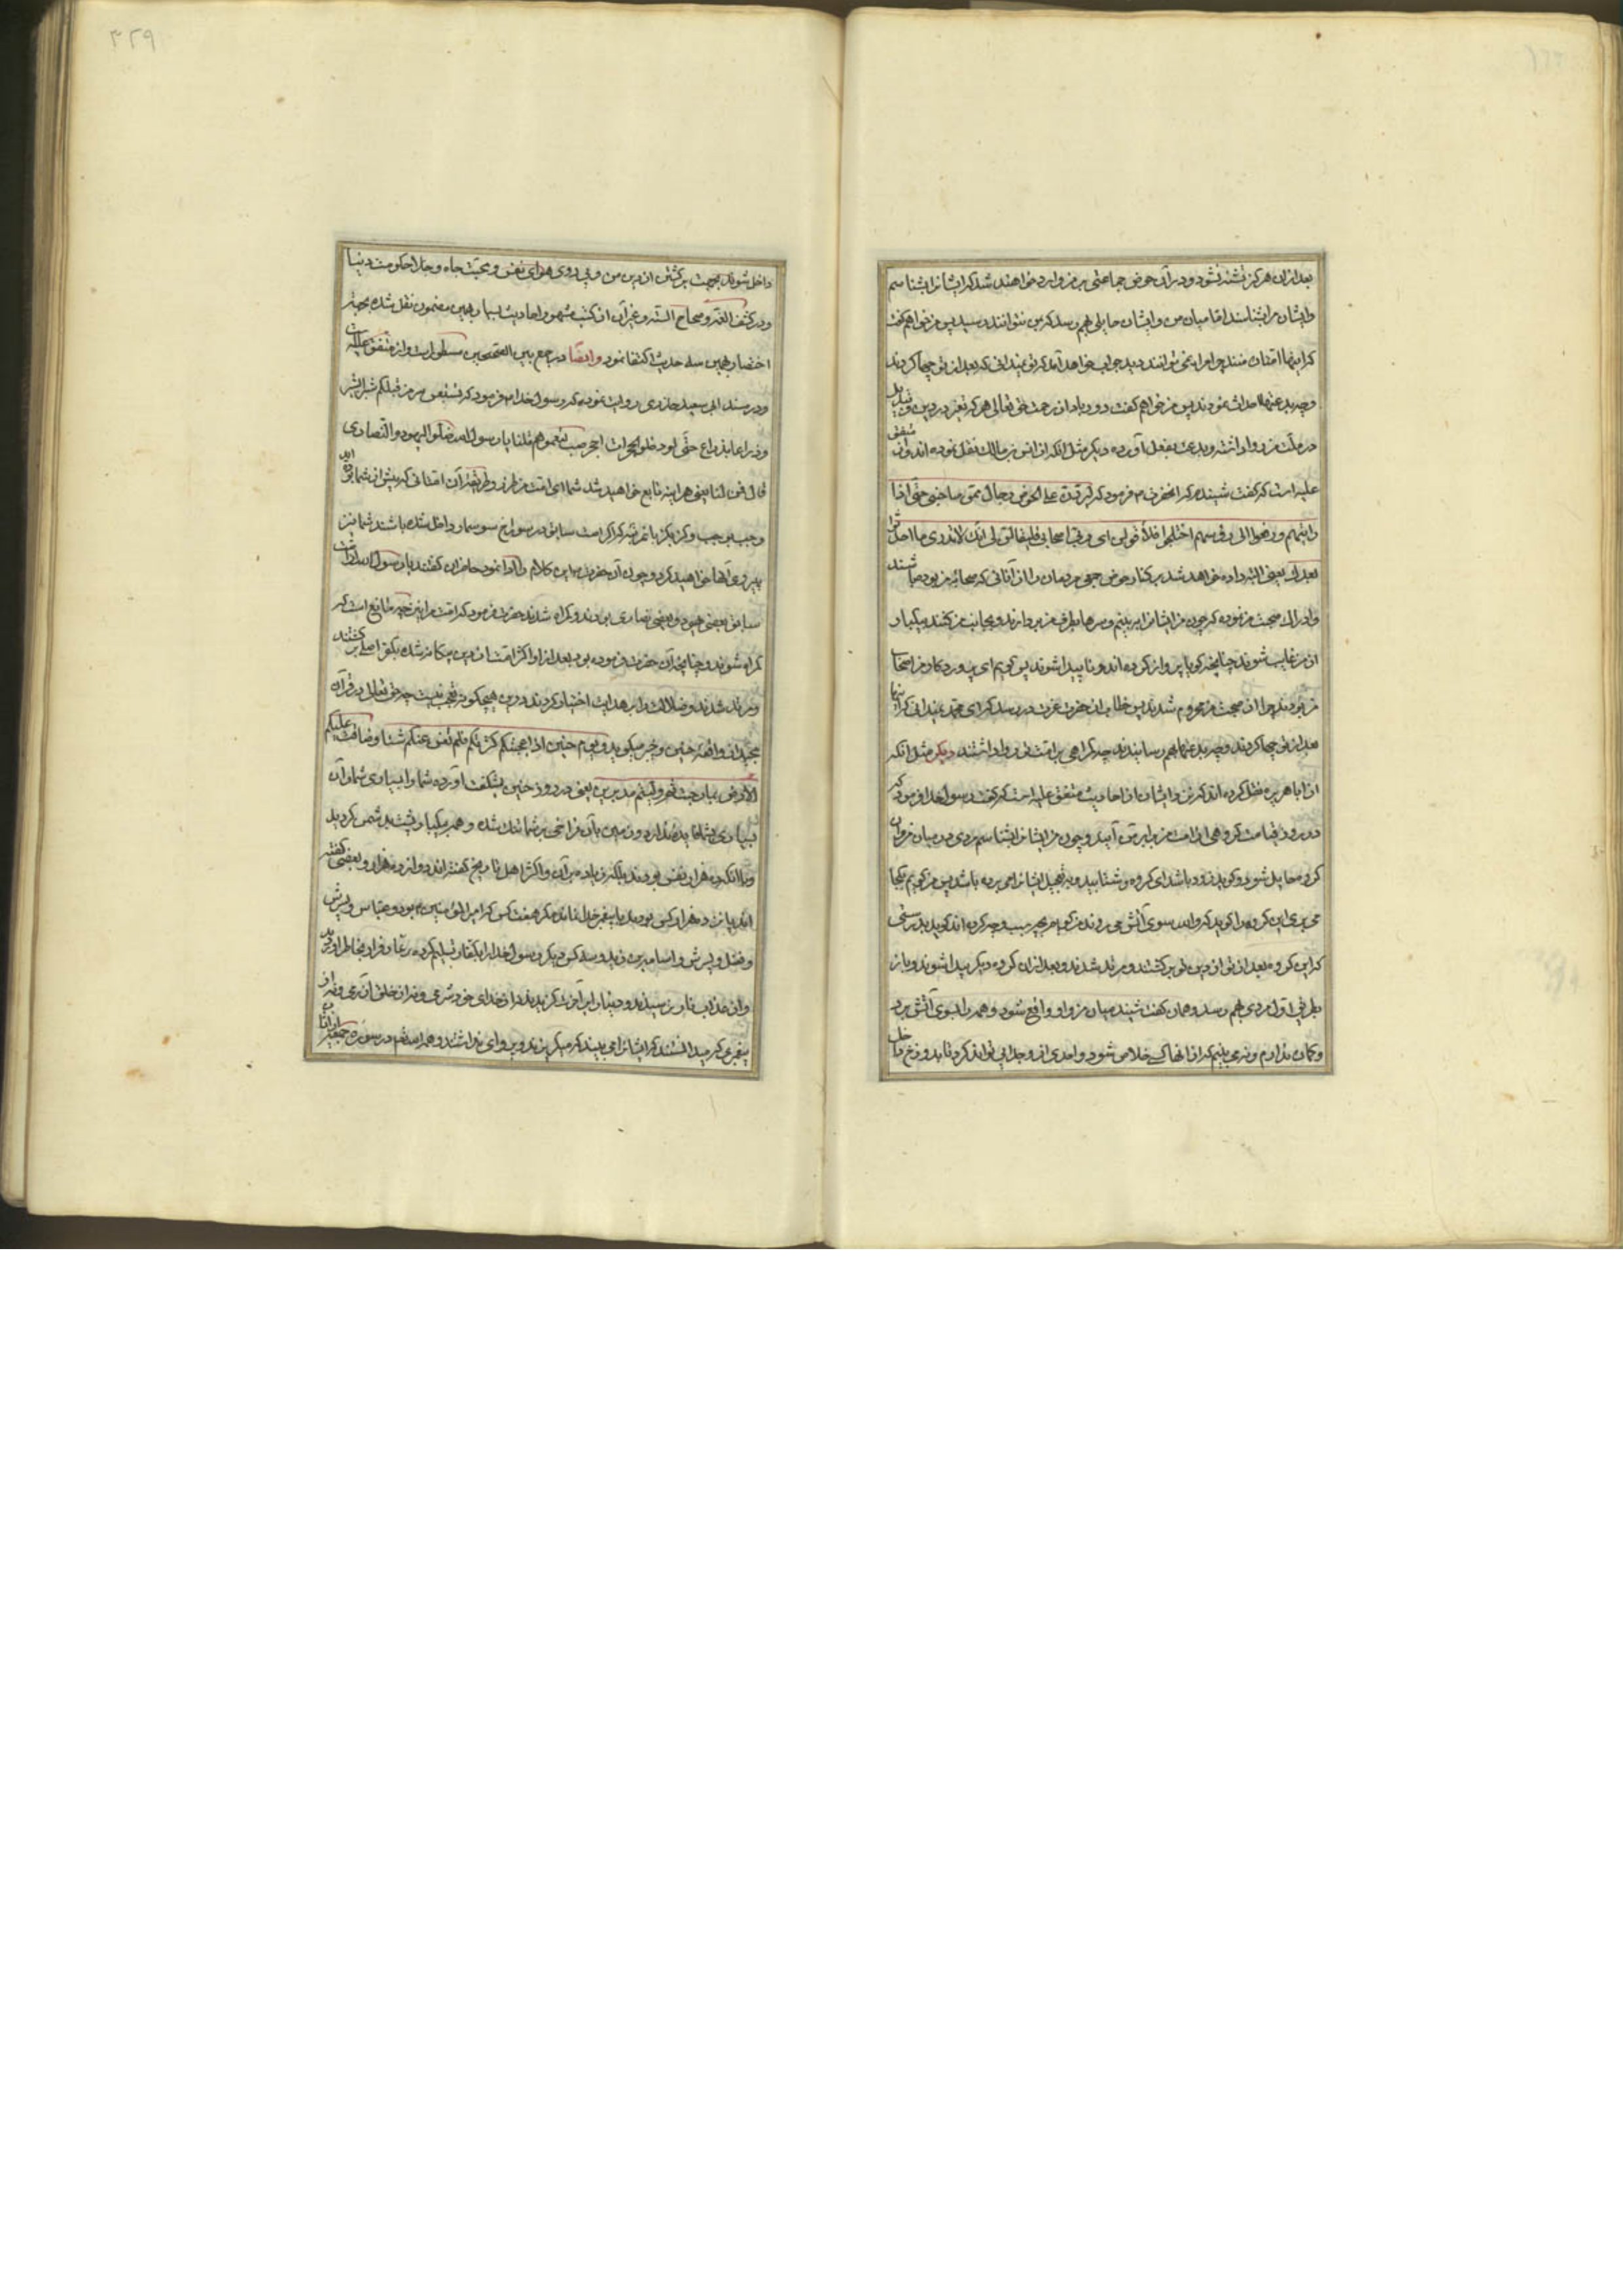 بعد از ان هرگز تشنه نشود و در آن حوض جماعتی بر من وارد خواهند شد که ایشانرا بشناسم
و ایشان مرا بشناسند اما میان من و ایشان حایلی بهم رسد که بمن نتوانند رسید پس من خواهم گفت
که اینها امتان منند چرا مرا نمی توانند دید جواب خواهد آمد که تو نمیدانی که بعد از تو چها کردند
و چه بدعتها احداث نمودند پس من خواهم گفت دور باد از رحمت حق تعالی هر که تغیر در دین و تبدیل
در ملت من روا داشته و بدعت بفعل آورده دیگر مثل انکه از انس بن مالک نقل نموده اند و آن متفق
علیه است که گفت شنیدم که انحضرت م فرمود که لیردن علی الحوض رجال ممن صاحبنی حتی اذا
رایتهم و رفعوا الی رؤسهم اختلجوا فلاقولن ای رب اصحابی فلیقالن لی انک لاتدری ما احدثوا
بعدک یعنی البته داده خواهد شد بر کنار حوض جمعی مردمان را از آنانی که صحابه من بوده باشند
و ادراک صحبت من نموده که چون من ایشانرا ببینم و سرها بطرف من بردارند و بجانب من کنند بیکبار
از من غایب شوند چنانچه گویا پرواز کرده اند و ناپیدا شوند پس گویم ای پروردگار من اصحاب
من بودند چرا از صحبت من محروم شدند پس خطاب از حضرت عزت در رسد که ای محمد نمیدانی که اینها
بعد از تو چها کردند و چه بدعتها بهم رسانیدند چه گمراهی بر امت تو روا داشتند دیگر مثل انکه
از ابا هریره نقل کرده اند که من و ایشان از احادیث متفق علیه است که گفت رسول خدا فرمود که
در روز قیامت گروهی از امت من برابر من آیند و چون من ایشانرا بشناسم مردی در میان من و آن
گروه حایل شود و گوید زود باشد ای گروه و شتابید و به تعجیل ایشانرا می برده باشد پس من گویم بکجا
می بری این گروه را گوید که والله سوی آتش می روند من گویم بچه سبب و چه کرده اند گوید بدرستی
که این گروه بعد از تو از دین تو برگشتند و مرتد شدند و بعد از ان گروه دیگر پیدا شوند و باز
بطریق اول مردی بهم رسد و همان گفت شنید میان من و او واقع شود و همه را بسوی آتش برد
و گمان ندارم و نمی بینم که از انها کسی خلاص شود و احدی از و جدایی تواند کرد تا بدوزخ داخل
داخل شوند بجهت برگشتن از دین من و پی روی هوای نفس و محبت جاه و جلال حکومت دنیا
و در کشف الغمه و صحاح السته و غیر آن از کتب مشهور احادیث بسیار بهمین مضمون نقل شده بجهة
اختصار بهمین سه حدیث اکتفا نمود وایضا در جمع بین الصحیحین مسطور است و از متفق علیه است
و در مسند ابی سعید خذری روایت نموده که رسول خدا م فرمود که لتتبعن سنن من قبلکم شبرا بشبر
و ذراعا بذراع حتی لو دخلوا جحر ضب لتبعتموهم قلنا یا رسول الله ضلوا الیهود والنصاری
قال فمن لنا یعنی هر اینه تابع خواهید شد شما ای امت من طرز و طریقه آن امتانی که پیش از شما بوده اند
وجب بوجب و گز بگز تا بمرتبه که اگر امت سابق در سوراخ سوسمار داخل شده باشند شما نیز
پیروی آنها خواهید کرد و چون آن حضرت م این کلام را ادا نمود حاضران گفتند یا رسول الله امت
سابق بعضی یهود و بعضی نصاری بودند و گمراه شدند حضرت فرمود که امت مرا نیز چه مانع است که
گمراه شوند و چنانچه آن حضرت فرموده بود بعد از او اکثر امتان از دین بیگانه شده بکفر اصلی برگشتند
و مرتد شدند و ضلالت را بر هدایت اختیار کردند و درین هیچ گونه تعجب نیست چه حق تعالی در قرآن
مجید از واقعه حنین و خبر میگوید و یوم حنین اذ اعجبتکم کثرتکم فلم تغن عنکم شیئا و ضاقت علیکم
الارض بما رحبت ثم ولیتم مدبرین یعنی در روز حنین بشگفت آورده شما را بسیاری شما و آن
بسیاری بشما فایده نداد و زمین با آن فراخی بر شما تنگ شده و همه بیکبار پشت بدشمن کردید
و با انکه ده هزار نفس بودند بلکه زیاده بر آن و اکثر اهل تاریخ گفته اند دوازده هزار و بعضی گفته
اند پانزده هزار کس بودند با پیغمبر خدا نماند مگر هفت کس که امیر المؤمنین م بود و عباس و پسرش
و فضل و پسرش و اسامه بن زید و سه کس دیگر و رسول خدا را بکفار تسلیم کرده
و از عذاب نار نترسیدند و دنیا را بر آخرت گزیدند
پیغمبر